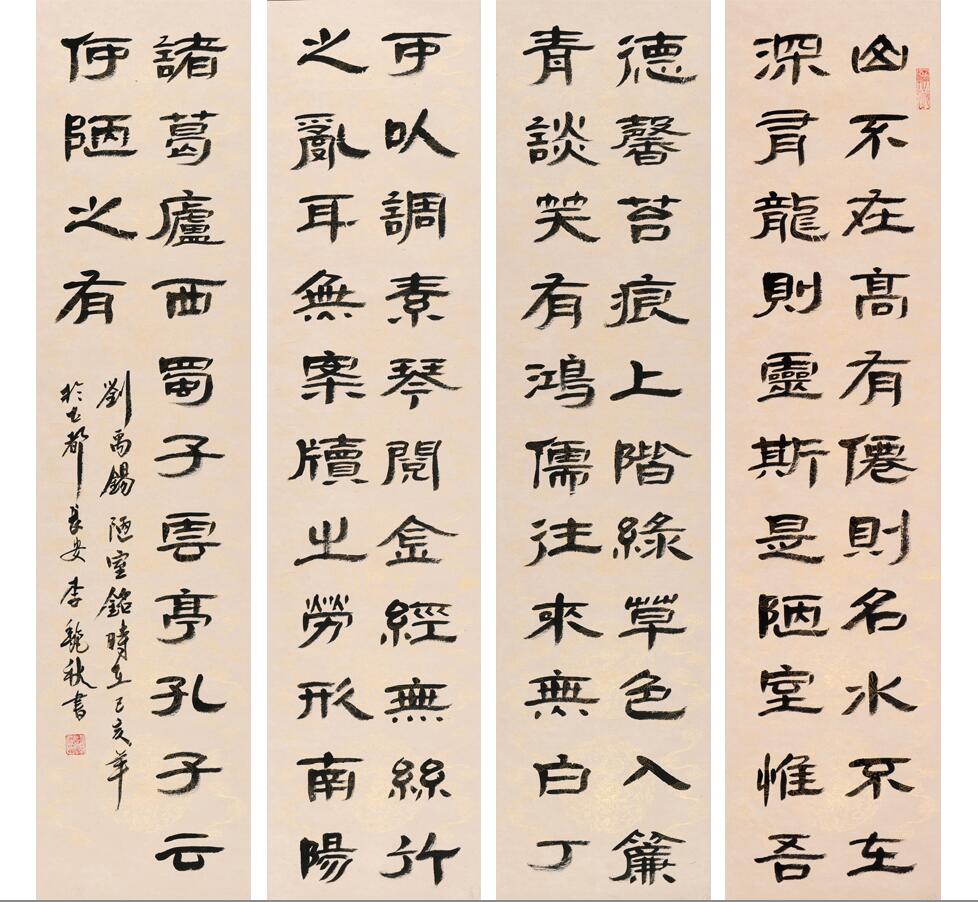 山不在高有僊則名水不在
深有龍則靈斯是陋室惟吾
德馨苔痕上階綠草色入簾
青談笑有鴻儒往來無白丁
可以調素琴閱金經無絲竹
之亂耳無案牘之勞形南陽
諸葛廬西蜀子雲亭孔子云
何陋之有
劉禹錫陋室銘時在己亥年
於古都長安李秋書